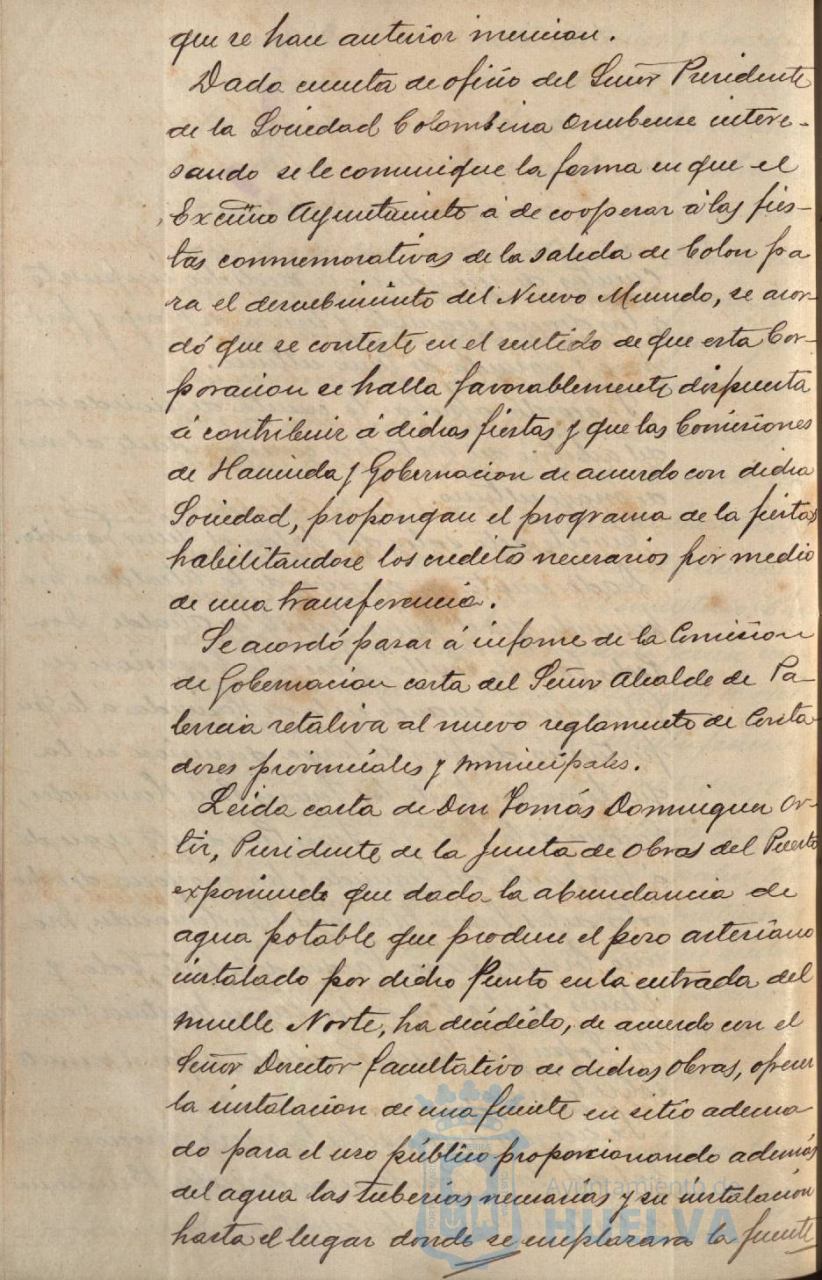 que se hace anterior mencion.
Dada cuenta de oficio del Señor Presidente
de la Sociedad Colombina Onubense intere-
sando se le comunique la forma en que el
Excmo Ayuntamiento á de cooperar á las fies-
tas conmemorativas de la salida de Colon pa
ra el descubrimiento del Nuevo Mundo, se acor-
dó que se conteste en el sentido de que esta Cor-
poracion se halla favorablemente dispuesta
á contribuir á dichas fiestas y que las Comisiones
de Hacienda y Gobernacion de acuerdo con dicha
Sociedad, propongan el programa de la fiestas
habilitandose los creditos necesarios por medio
de una transferencia.
Se acordó pasar á informe de la Comision
de Gobernacion carta del Señor Alcalde de Pa-
lencia retaliva al nuevo reglamento de Conta-
dores provinciales y municipales.
Leida carta de Don Tomás Dominguez Or-
tiz, Presidente de la Junta de Obras del Puerto
exponiendo que dada la abundancia de
agua potable que produce el pozo artesiano
instalado por dicho Puerto en la entrada del
muelle Norte, ha decidido, de acuerdo con el
Señor Director facultativo de dichas Obras, ofrecer
la instalacion de una fuente en sitio adecua
do para el uso público proporcionando además
del agua las tuberias necesarias y su instalacion
hasta el lugar donde se emplazara la fuente
Ayuntamiento de
HUELVA